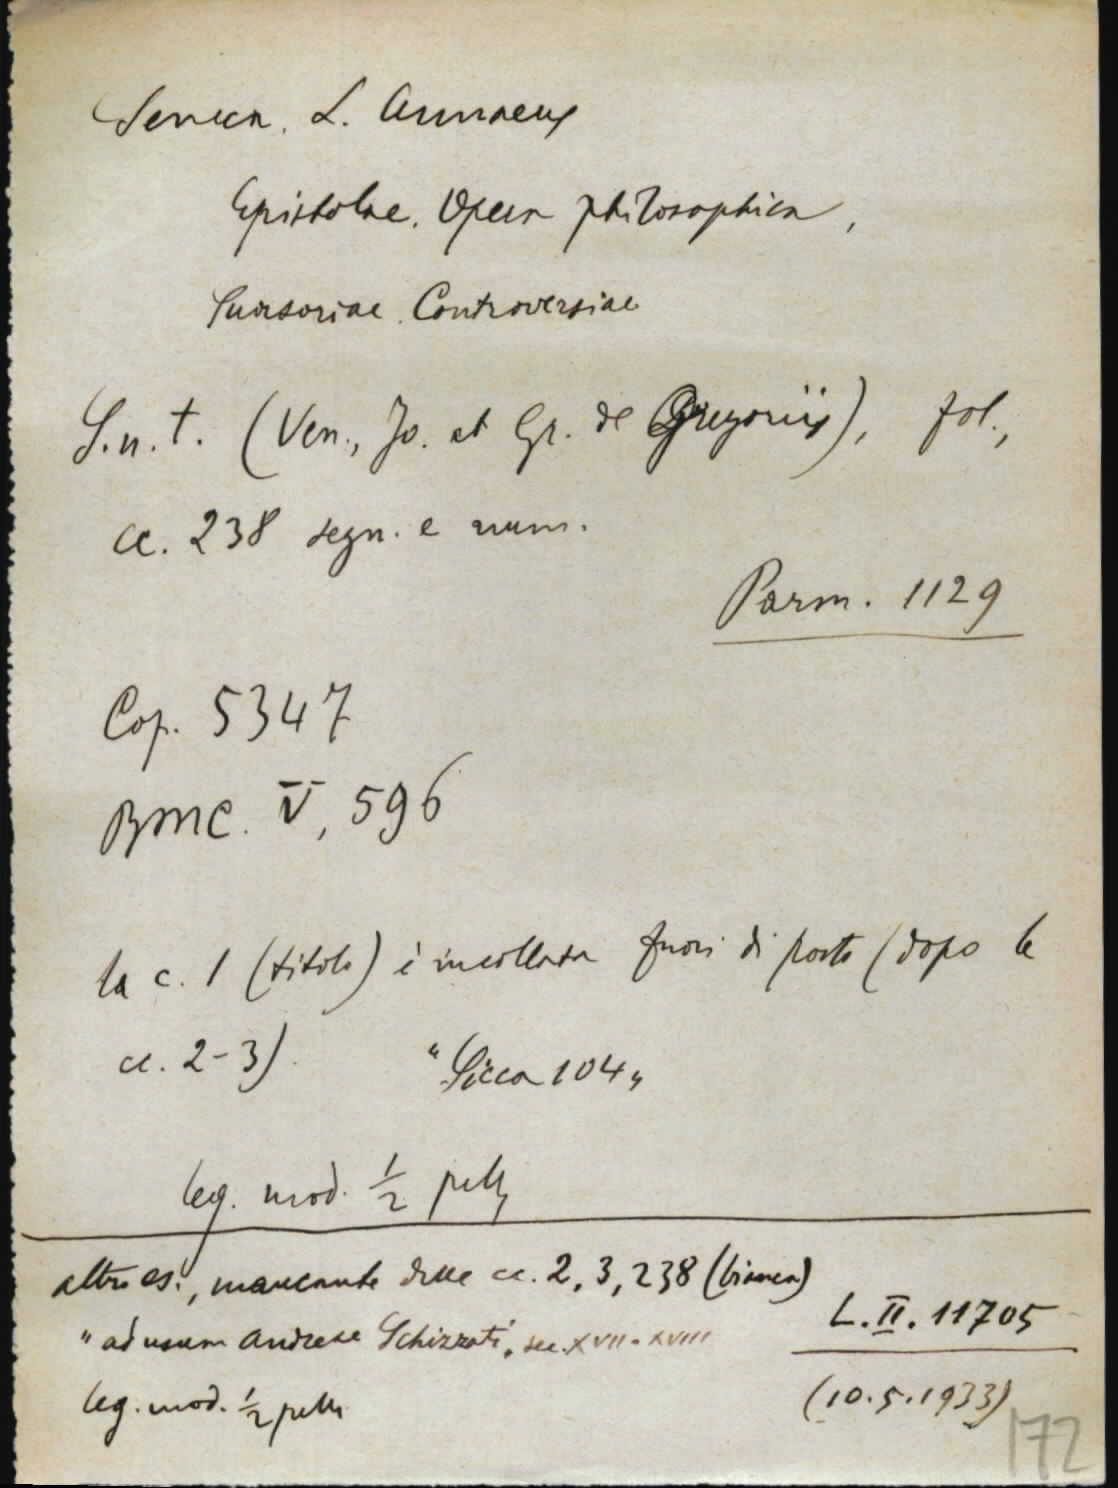 Seneca. L. Annaeus
Epistolae. Opera philosophica,
Suasoriae. Controversiae
S.n.t. (Ven., Jo. et Gr. de Gregoriis), fol.,
cc. 238 segn. e num.
Parm. 1129
Cop. 5347
BMC. V, 596
la c. 1 (titolo) è incollata fuori di posto (dopo le
cc. 2-3).
"Sicca 104"
leg. mod. 1/2 pelle
altro es., mancante delle cc. 2, 3, 238 (bianca)
L. II. 11705
"ad usum Andreae Schizzati", sec. XVII-XVIII
leg. mod. 1/2 pelle
(10.5.1933)
172